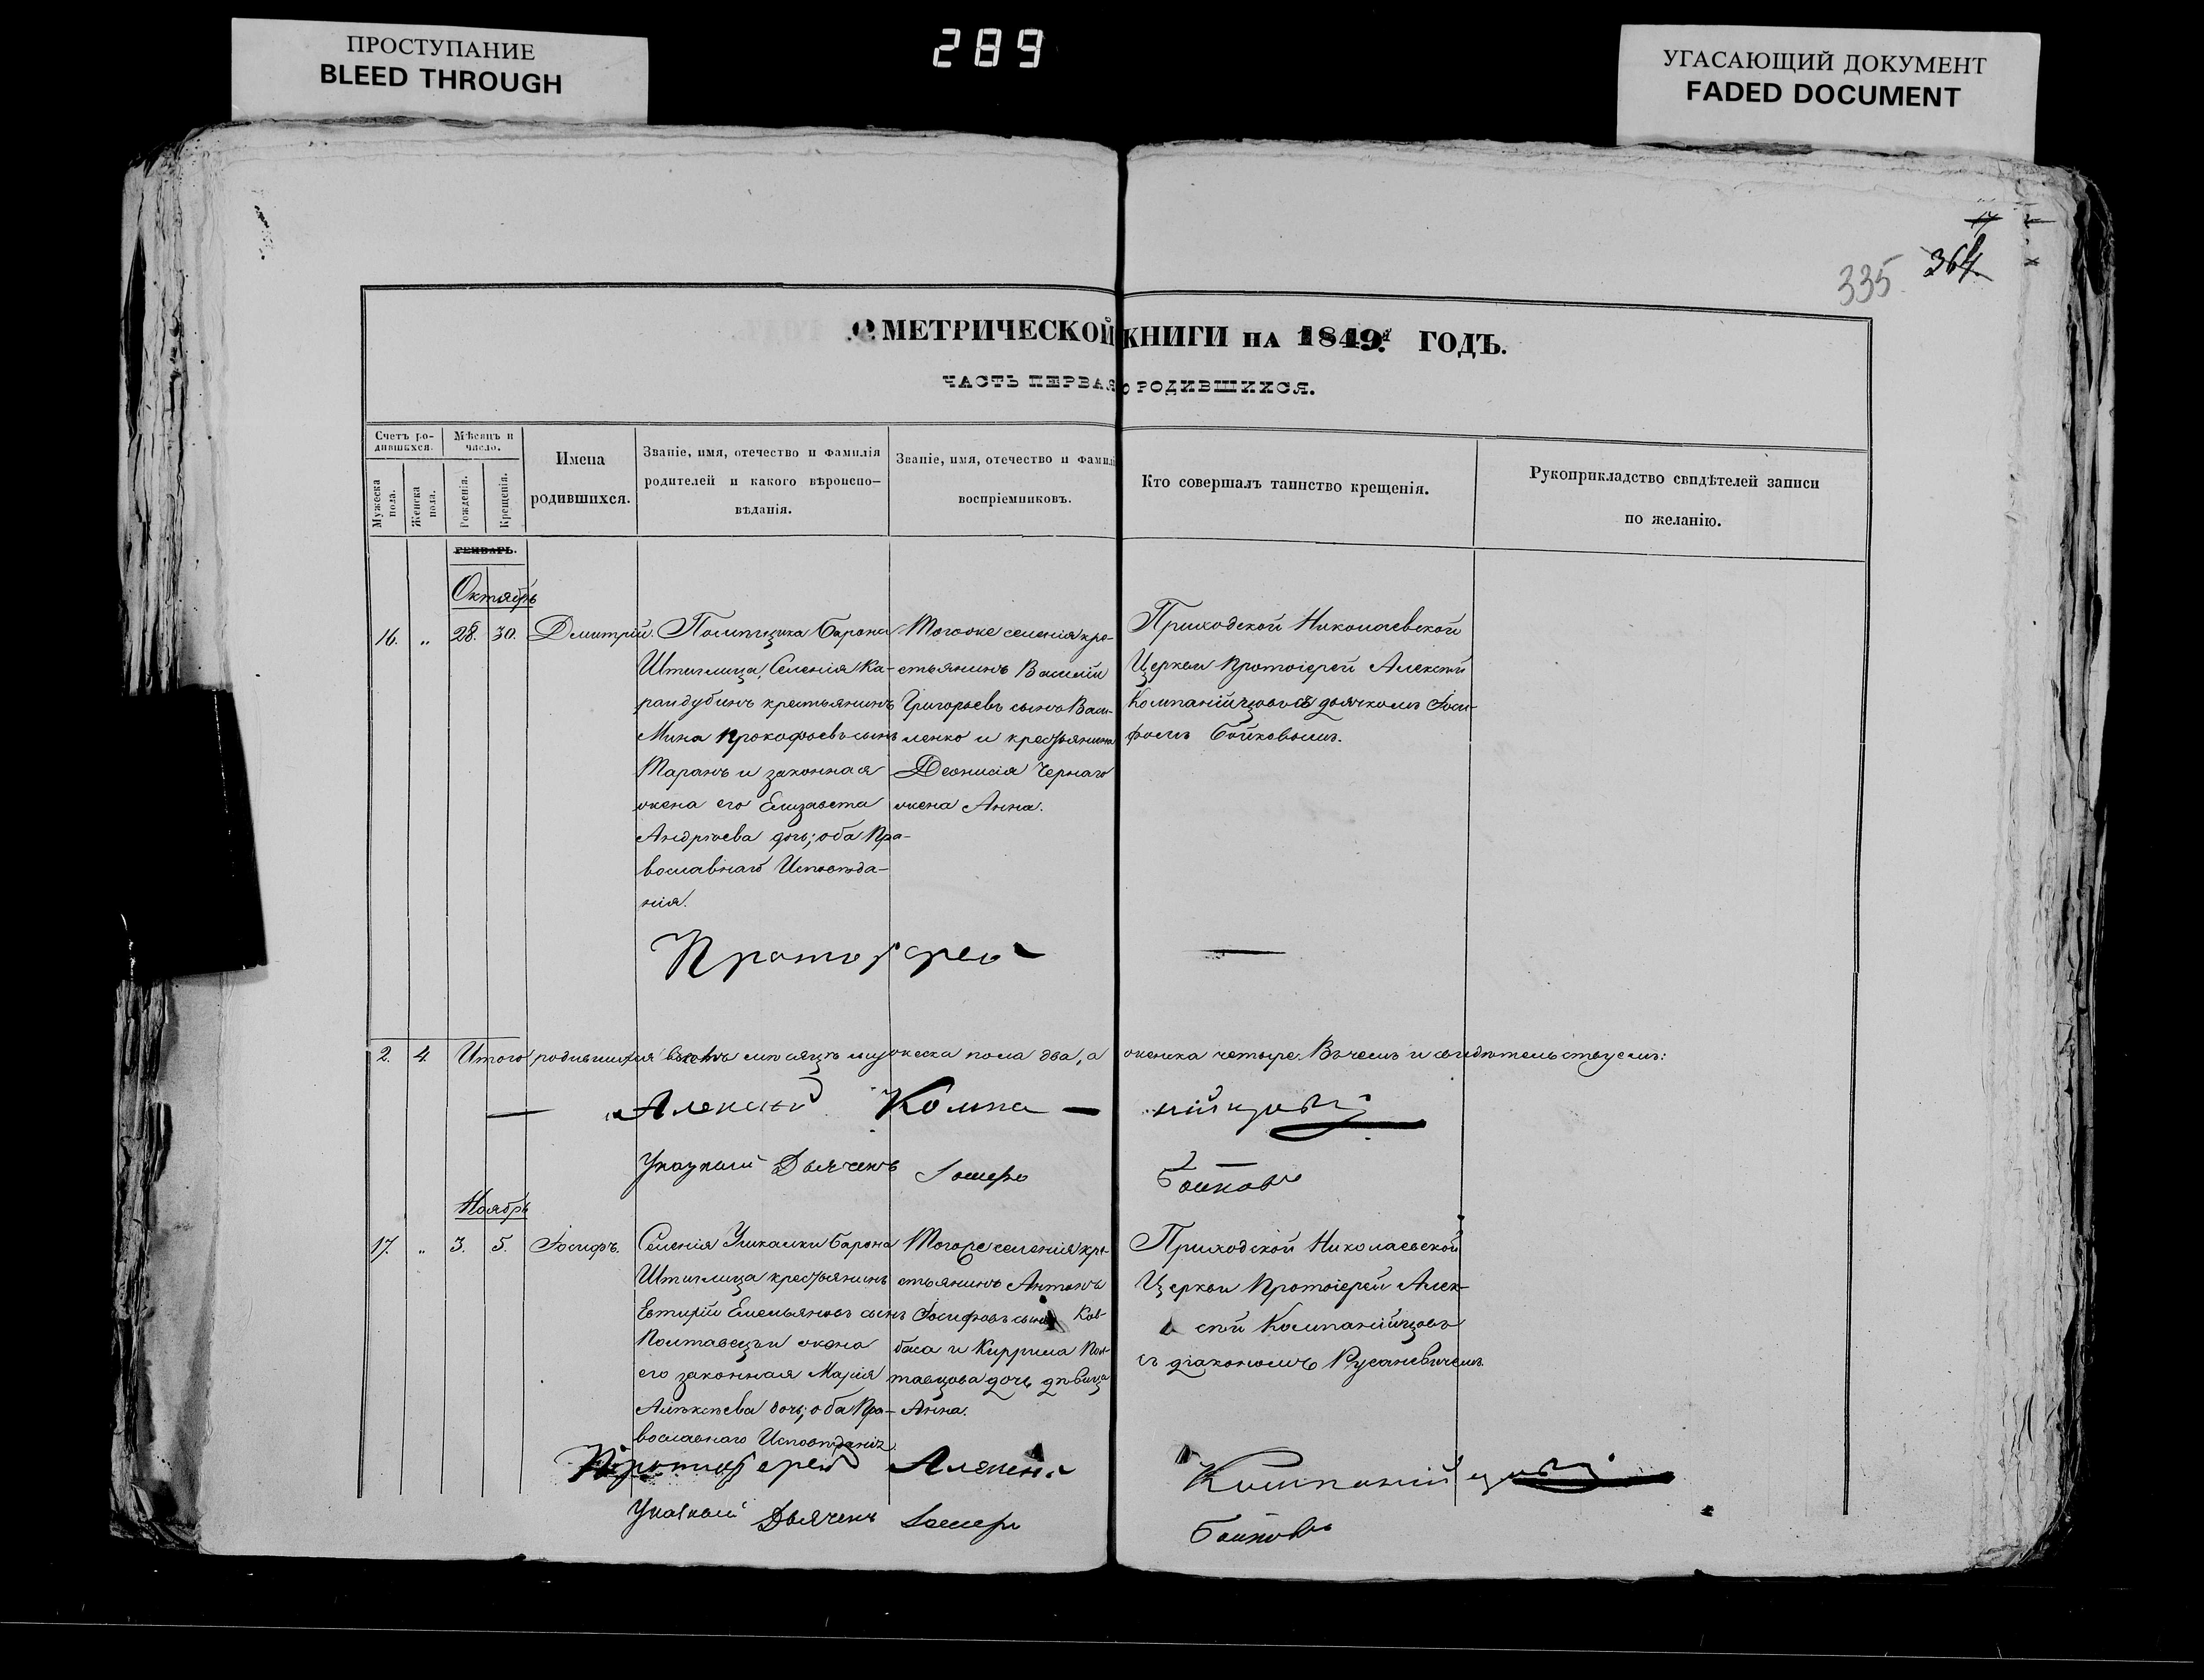 ПРОСТУПАНИЕ
BLEED THROUGH
289
УГАСАЮЩИЙ ДОКУМЕНТ
FADED DOCUMENT
335. 364.
МЕТРИЧЕСКОЙ КНИГИ НА 1849й ГОДЪ.
ЧАСТЬ ПЕРВАЯ О РОДИВШИХСЯ.
Счетъ родившихся.
Мужеска пола.
Женска пола.
Мѣсяцъ и число.
Рожденія.
Крещенія.
Имена
родившихся.
Званіе, имя, отечество и фамилія
родителей и какого вѣроиспо-
вѣданія.
Званіе, имя, отечество и фамилі
воспріемниковъ.
Кто совершалъ таинство крещенія.
Рукоприкладство свидѣтелей записи
по желанію.
Октябрь
16. „ 28. 30. Дмитрій.
Помѣщика Барона
Штиглица, Селенія Ка-
раидубинъ крестьянинъ
Мина Прокофьевъ сынъ
Таранъ и законная
жена его Елизавета
Андрѣева дочь; оба Пра-
вославнаго Исповѣда-
нія.
Тогоже селенія кре-
стьянинъ Василій
Григорьевъ сынъ Васи-
ленко и крестьянина
Деонисія Чернаго
жена Анна.
Приходской Николаевской
Церкви Протоіерей Алексѣй
Компанійцовъ съ дьячкомъ Іоси-
фомъ Бойковымъ.
Протоіерей
2. 4 Итого родившихся въ семъ мѣсяцѣ мужеска пола два, а женска четыре. Въ чемъ и свидѣтельствуемъ:
Алексѣй Компа- нійцовъ
Указный Дьячекъ Іосифъ Бойковъ
Ноябрь
17. „ 3. 5. Іосифъ.
Селенія Ушкалки Барона
Штиглица крестьянинъ
Евтихій Емельяновъ сынъ
Полтавецъ и жена
его законная Марія
Алексѣева дочь; оба Пра-
вославнаго Исповѣданія.
Тогоже селенія кре-
стьянинъ Антонъ
Іосифовъ сынъ Ков-
баса и Кирилла Пол-
тавцова дочь дѣвица
Анна.
Приходской Николаевской
Церкви Протоіерей Алек-
сѣй Компанійцовъ
съ діакономъ Русаневичемъ.
Протоіерей Алексѣй Компанійцовъ
Указный Дьячекъ Іосифъ Бойковъ